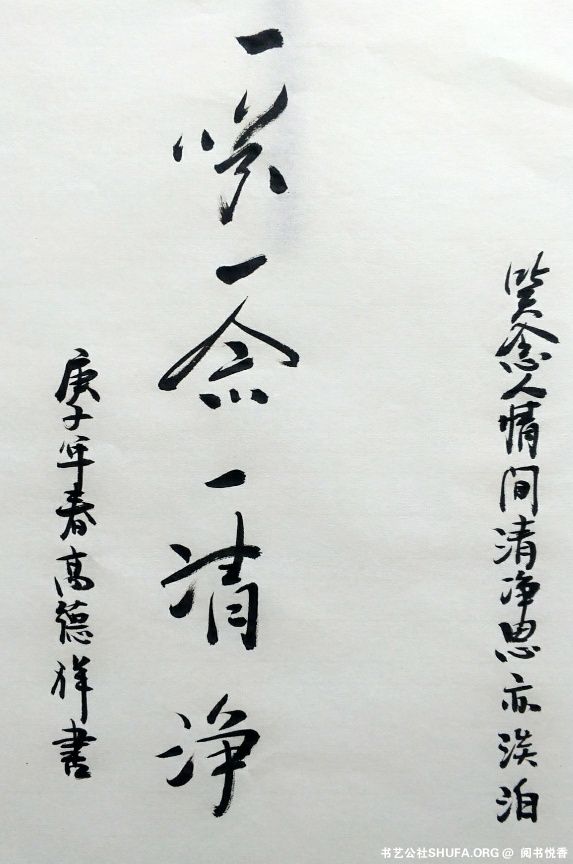 咲念人情间清净思亦淡泊
一咲一念一清净
庚子年春高德祥书
书艺公社SHUFA.ORG @ 阅书悦香